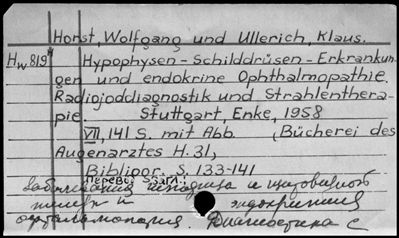 Horst, Wolfgang und Ullerich, Klaus.
Hw 819 Hypophysen-Schilddrüsen-Erkrankun-
gen und endokrine Ophthalmopathie.
Radiojoddiagnostik und Strahlenthera-
pie. Stuttgart, Enke, 1958
VII, 141 S. mit Abb. (Bücherei des
Augenarztes H. 31,
Bibliogr. S. 133-141
Перевод загл.:
Заболевания гипофиза и щитовидной
железы и эндокринная
офтальмопатия. Диагностика с